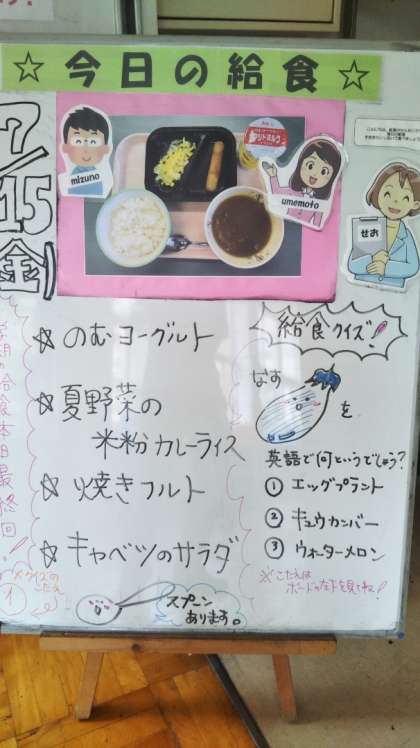 ☆ 今日の給食 ☆
7/15
(金)
mizuno
umemoto
せお
☆ のむヨーグルト
☆ 夏野菜の
米粉カレーライス
☆ 焼きフルト
☆ キャベツのサラダ
スプーン
あります。
給食クイズ!
なす
を
英語で何というでしょう?
① エッグプラント
② キュウカンバー
③ ウォーターメロン
※こたえは
ボードの左下を見てね!
学期の給食本日最終回!
※クイズの
こたえ
①